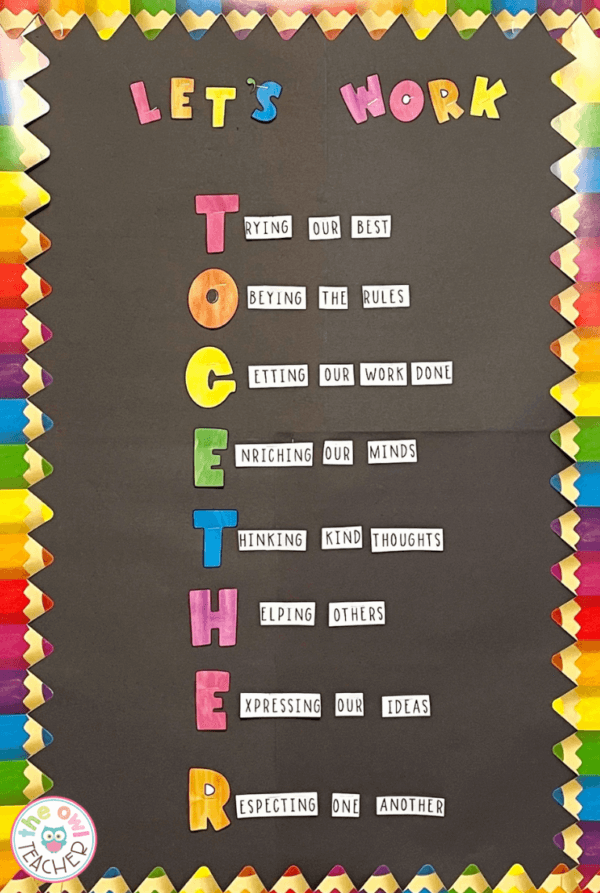 LET'S WORK
TRYING OUR BEST
OBEYING THE RULES
GETTING OUR WORK DONE
ENRICHING OUR MINDS
THINKING KIND THOUGHTS
HELPING OTHERS
EXPRESSING OUR IDEAS
RESPECTING ONE ANOTHER
the owl
TEACHER